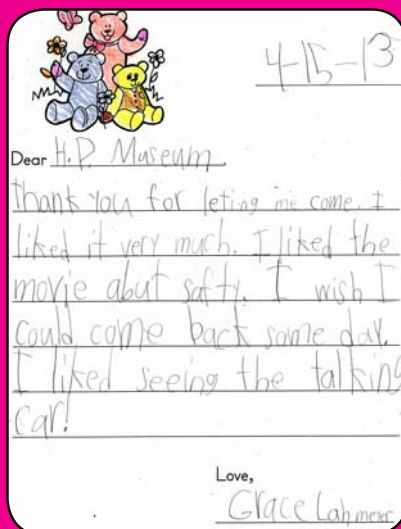 4-15-13
Dear H.P. Museum,
thank you for leting me come. I
liked it very much. I liked the
movie abut safty. I wish I
could come back some day.
I liked seeing the talking
car!
Love,
Grace Lahmeier